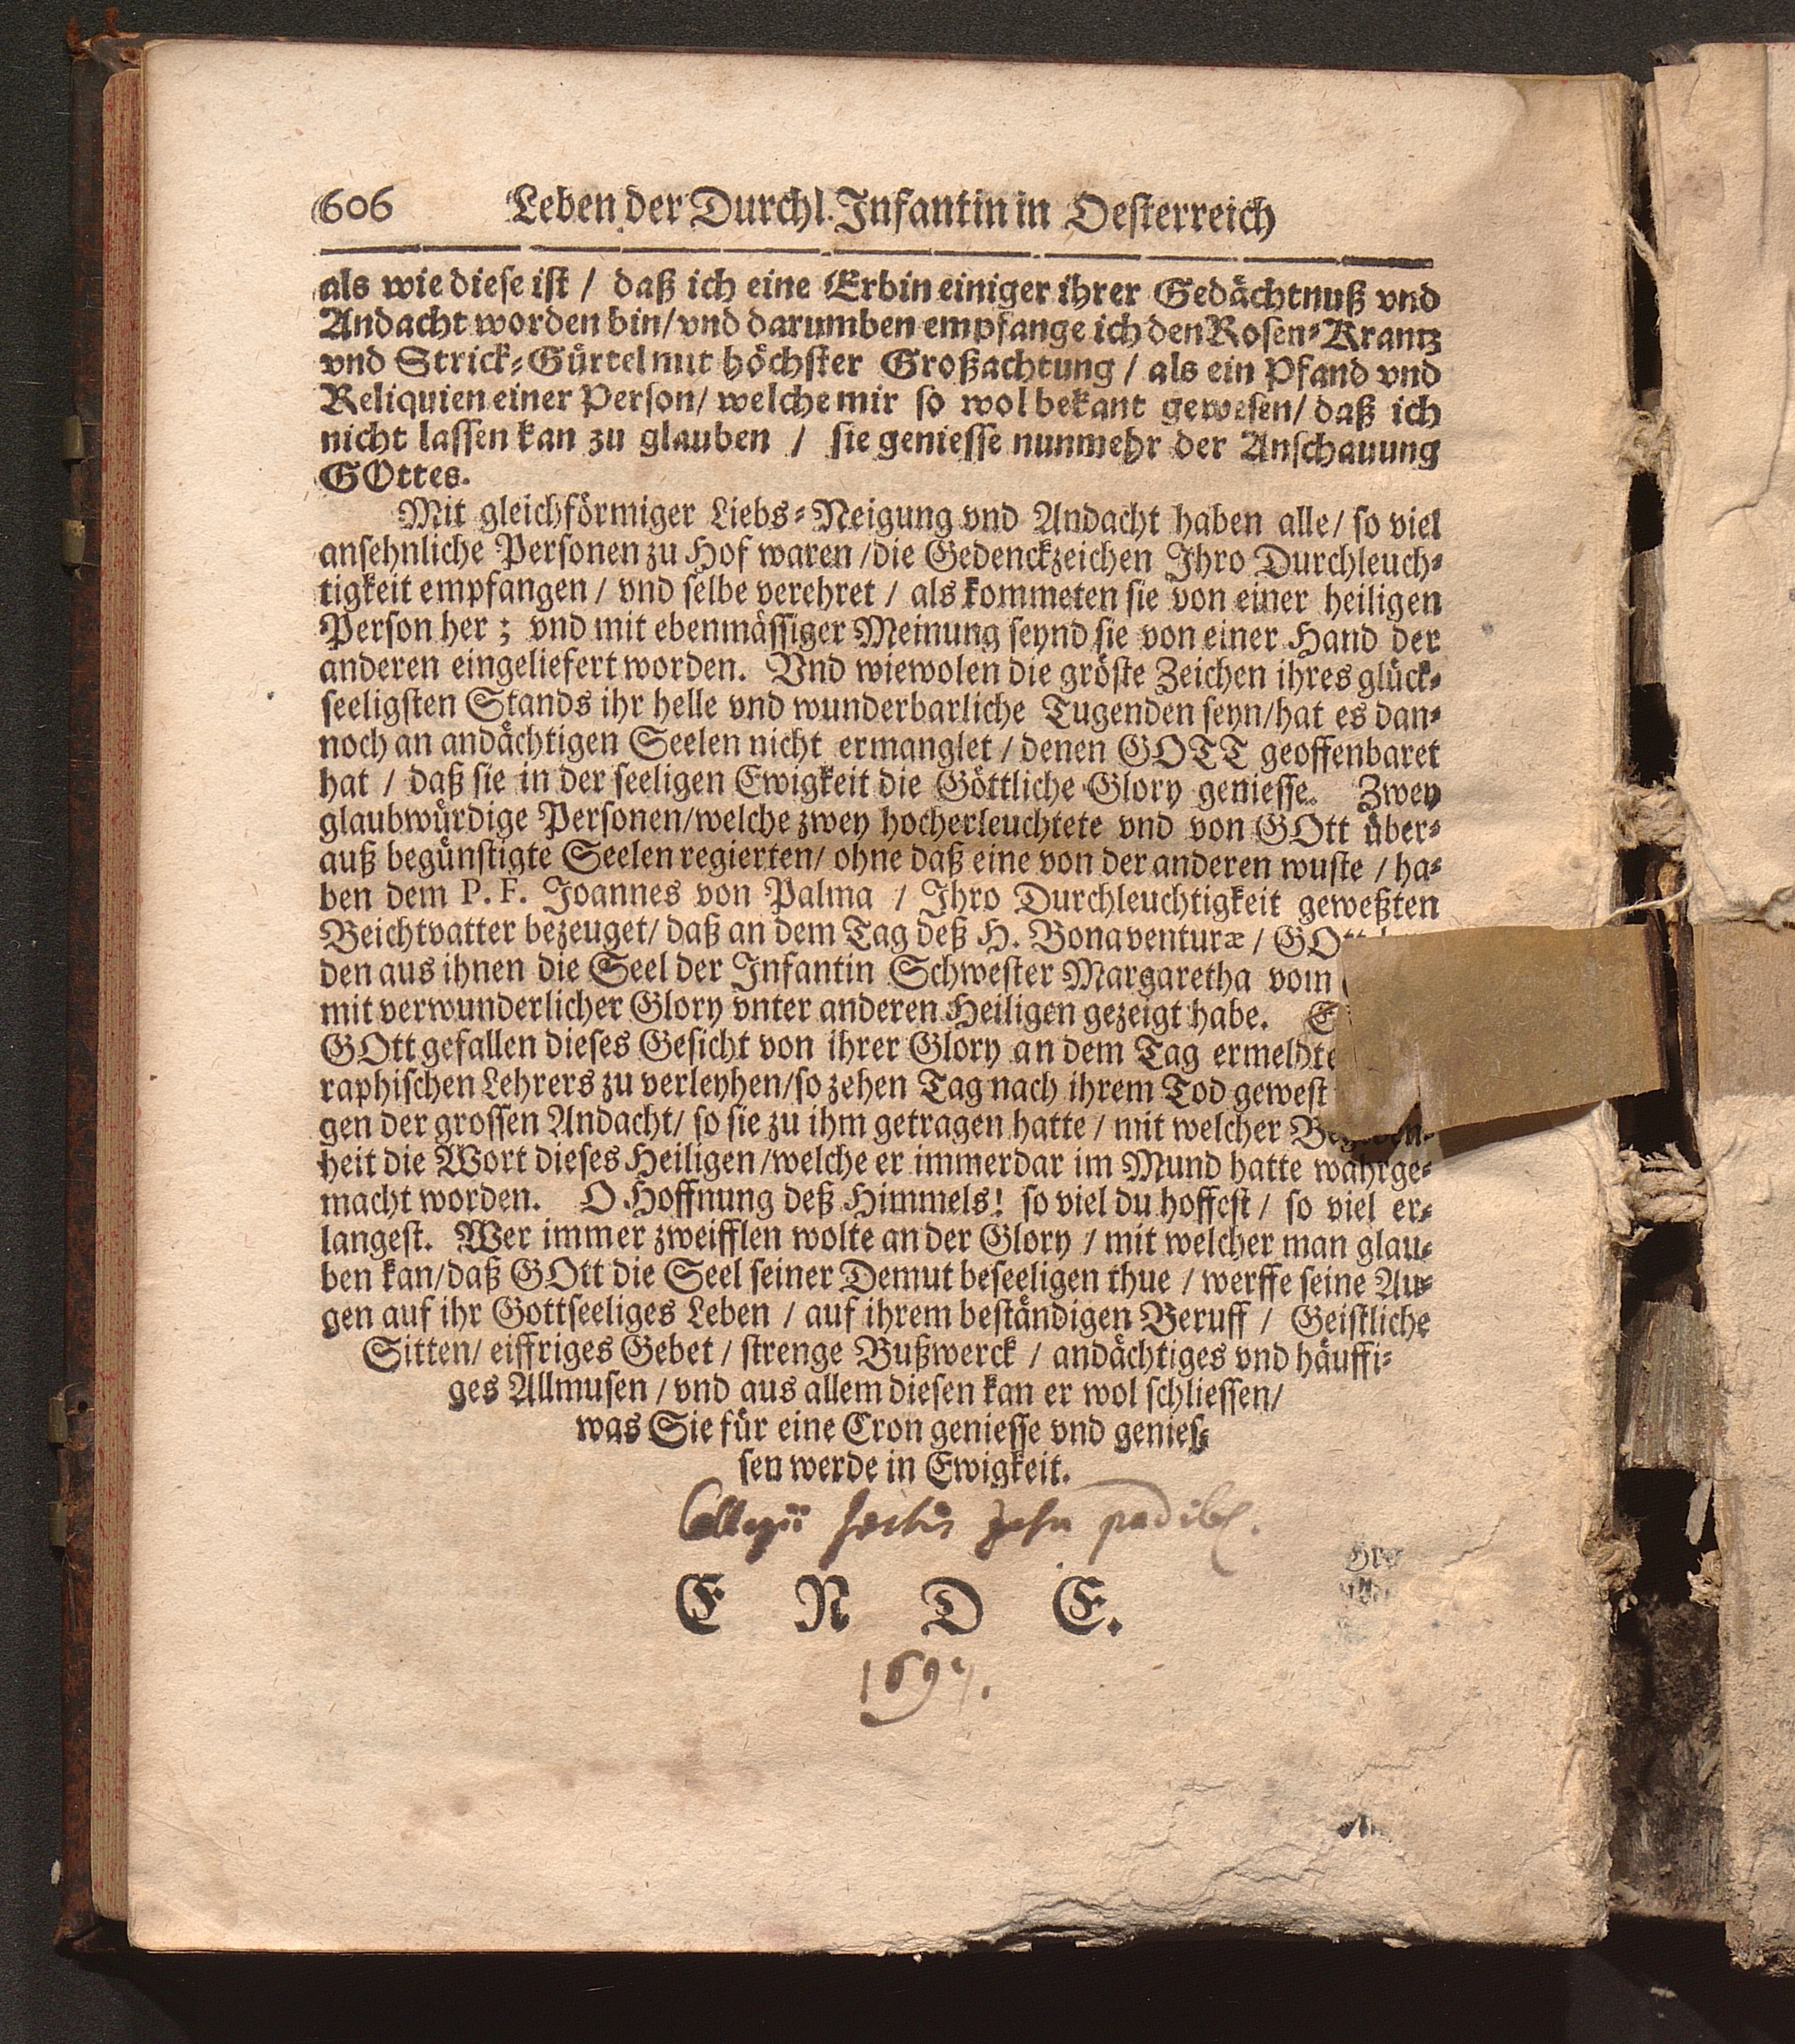 606 Leben der Durchl. Infantin in Oesterreich
als wie diese ist / daß ich eine Erbin einiger ihrer Gedächtnuß vnd
Andacht worden bin/ vnd darumben empfange ich den Rosen-Krantz
vnd Strick-Gürtel mit höchster Großachtung / als ein Pfand vnd
Reliquien einer Person/ welche mir so wol bekant gewesen/ daß ich
nicht lassen kan zu glauben / sie geniesse nunmehr der Anschauung
GOttes.
Mit gleichförmiger Liebs-Neigung vnd Andacht haben alle/ so viel
ansehnliche Personen zu Hof waren /die Gedenckzeichen Ihro Durchleuch-
tigkeit empfangen / vnd selbe verehret / als kommeten sie von einer heiligen
Person her ; vnd mit ebenmässiger Meinung seynd sie von einer Hand der
anderen eingeliefert worden. Vnd wiewolen die gröste Zeichen ihres glück-
seeligsten Stands ihr helle vnd wunderbarliche Tugenden seyn/hat es dan-
noch an andächtigen Seelen nicht ermanglet / denen GOTT geoffenbaret
hat / daß sie in der seeligen Ewigkeit die Göttliche Glory geniesse. Zwey
glaubwürdige Personen/welche zwey hocherleuchtete vnd von GOtt über-
auß begünstigte Seelen regierten/ ohne daß eine von der anderen wuste / ha-
ben dem P. F. Joannes von Palma / Ihro Durchleuchtigkeit geweßten
Beichtvatter bezeuget/ daß an dem Tag deß H. Bonaventuræ / GOtt
den aus ihnen die Seel der Infantin Schwester Margaretha vom
mit verwunderlicher Glory vnter anderen Heiligen gezeigt habe.
GOtt gefallen dieses Gesicht von ihrer Glory an dem Tag ermeldte
raphischen Lehrers zu verleyhen/so zehen Tag nach ihrem Tod gewest
gen der grossen Andacht/ so sie zu ihm getragen hatte / mit welcher
heit die Wort dieses Heiligen /welche er immerdar im Mund hatte wahrge-
macht worden. O Hoffnung deß Himmels! so viel du hoffest / so viel er-
langest. Wer immer zweifflen wolte an der Glory / mit welcher man glau-
ben kan/daß GOtt die Seel seiner Demut beseeligen thue / werffe seine Au-
gen auf ihr Gottseeliges Leben / auf ihrem beständigen Beruff / Geistliche
Sitten/ eiffriges Gebet / strenge Bußwerck / andächtiges vnd häuffi-
ges Allmusen / vnd aus allem diesen kan er wol schliessen/
was Sie für eine Cron geniesse vnd genies-
sen werde in Ewigkeit.
zehn
E N D E.